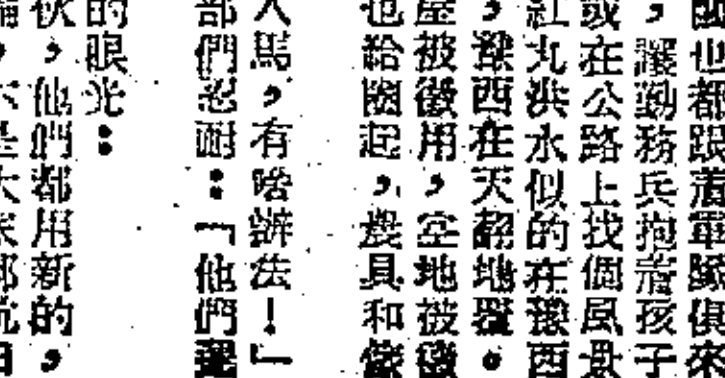 也都跟着軍隊俱來
，讓勤務兵抱着孩子
或在公路上找個風景
紅丸洪水似的在豫西
，豫西在天翻地覆。
屋被徵用，空地被徵
也給圈起，農具和傢
人馬，有啥辦法！」
部們忍耐：「他們
的眼光：
伙，他們都用新的，